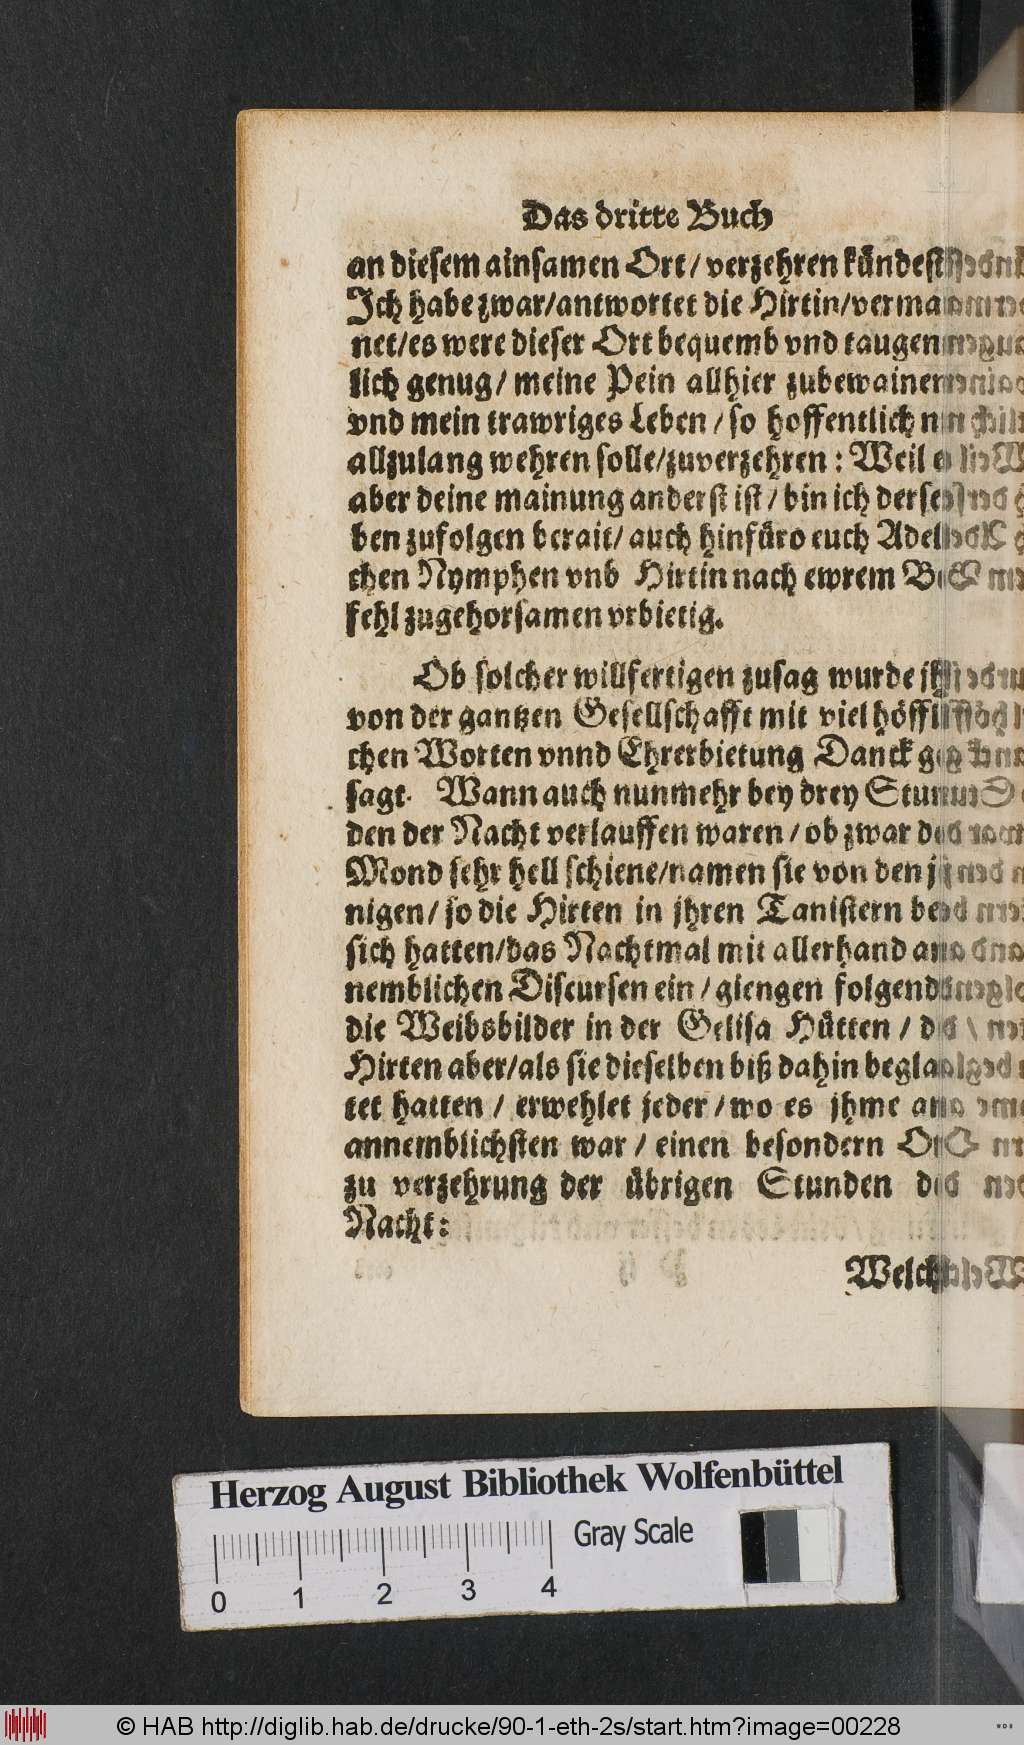 Das dritte Buch
an diesem ainsamen Ort / verzehren kündest
Ich habe zwar/antwortet die Hirtin/vermai
net/es were dieser Ort bequemb vnd taugen
lich genug / meine Pein allhier zubewainen
vnd mein trawriges Leben / so hoffentlich
allzulang wehren solle/zuverzehren : Weil
aber deine mainung anderst ist / bin ich
ben zufolgen berait/ auch hinfüro euch Adeli
chen Nymphen vnb Hirtin nach ewrem Be
fehl zugehorsamen vrbietig.
Ob solcher willfertigen zusag wurde jhr
von der gantzen Gesellschafft mit viel höffli
chen Worten vnnd Ehrerbietung Danck ge
sagt. Wann auch nunmehr bey drey Stun
den der Nacht verlauffen waren / ob zwar der
Mond sehr hell schiene/namen sie von den je
nigen / so die Hirten in jhren Tanistern bey
sich hatten/das Nachtmal mit allerhand an
nemblichen Discursen ein / giengen folgends
die Weibsbilder in der Gelisa Hütten / die
Hirten aber/als sie dieselben biß dahin beglai
tet hatten / erwehlet jeder / wo es jhme am
annemblichsten war / einen besondern Ort
zu verzehrung der übrigen Stunden der
Nacht:
Welch
Herzog August Bibliothek Wolfenbüttel
Gray Scale
0 1 2 3 4
© HAB http://diglib.hab.de/drucke/90-1-eth-2s/start.htm?image=00228